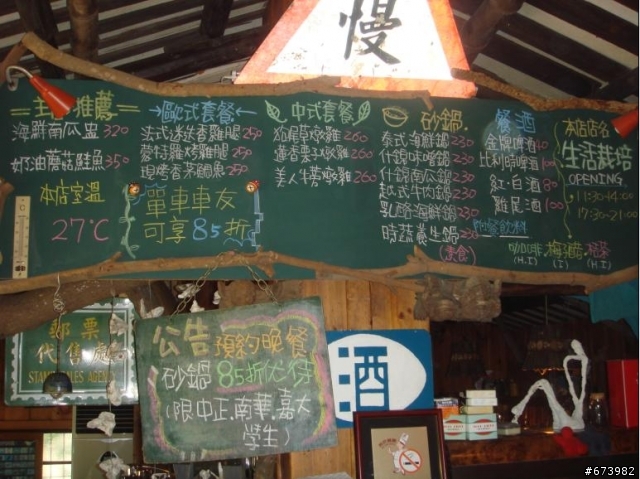 慢
主廚推薦
海鮮南瓜盅 320
奶油蘑菇鮭魚 350
本店室溫
27°C
歐式套餐
法式迷迭香雞腿 250
蒙特羅烤雞腿 250
現烤香茅鯛魚 250
單車車友
可享85折
中式套餐
狗尾草燉雞 260
蓮香栗子燉雞 260
美人牛蒡燉雞 260
砂鍋
泰式海鮮鍋 230
什錦味噌鍋 230
什錦南瓜鍋 230
紅式牛肉鍋 230
乳酪海鮮鍋 230
時蔬養生鍋 230
(素食)
餐酒
金牌啤酒
比利時啤酒
紅.白酒 80
雞尾酒 100
附餐飲料
咖啡.
(H.I) (I) (H.I)
本店店名
生活栽培
OPENING.
11:30-14:00
17:30-21:00
郵票
代售處
STAMPS AGENCY
公告 預約晚餐
砂鍋 85折优待
(限中正.南華.嘉大
學生)
酒
#673982